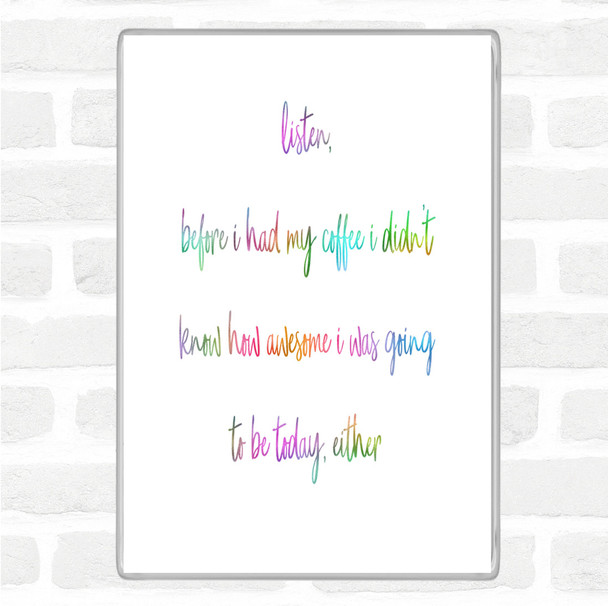 listen,
before i had my coffee i didn't
know how awesome i was going
to be today, either